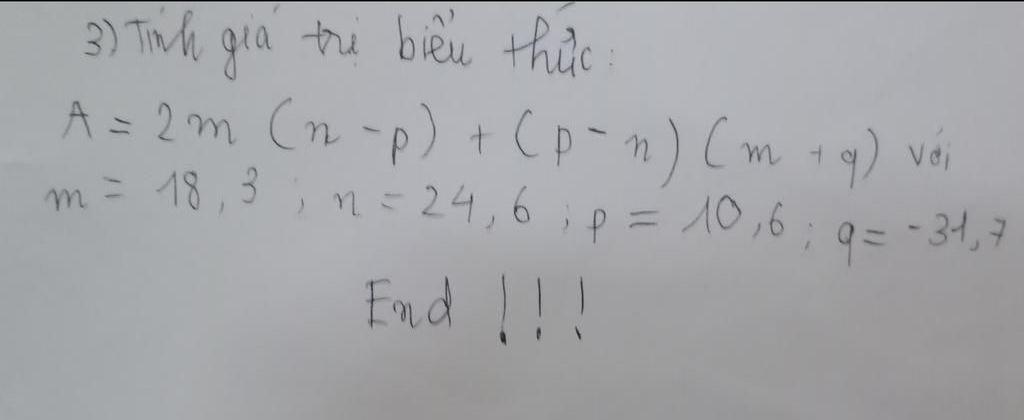 3) Tính giá trị biểu thức:
A = 2m (n - p) + (p - n) (m + q) với
m = 18,3 ; n = 24,6 ; p = 10,6 ; q = -31,7
End !!!